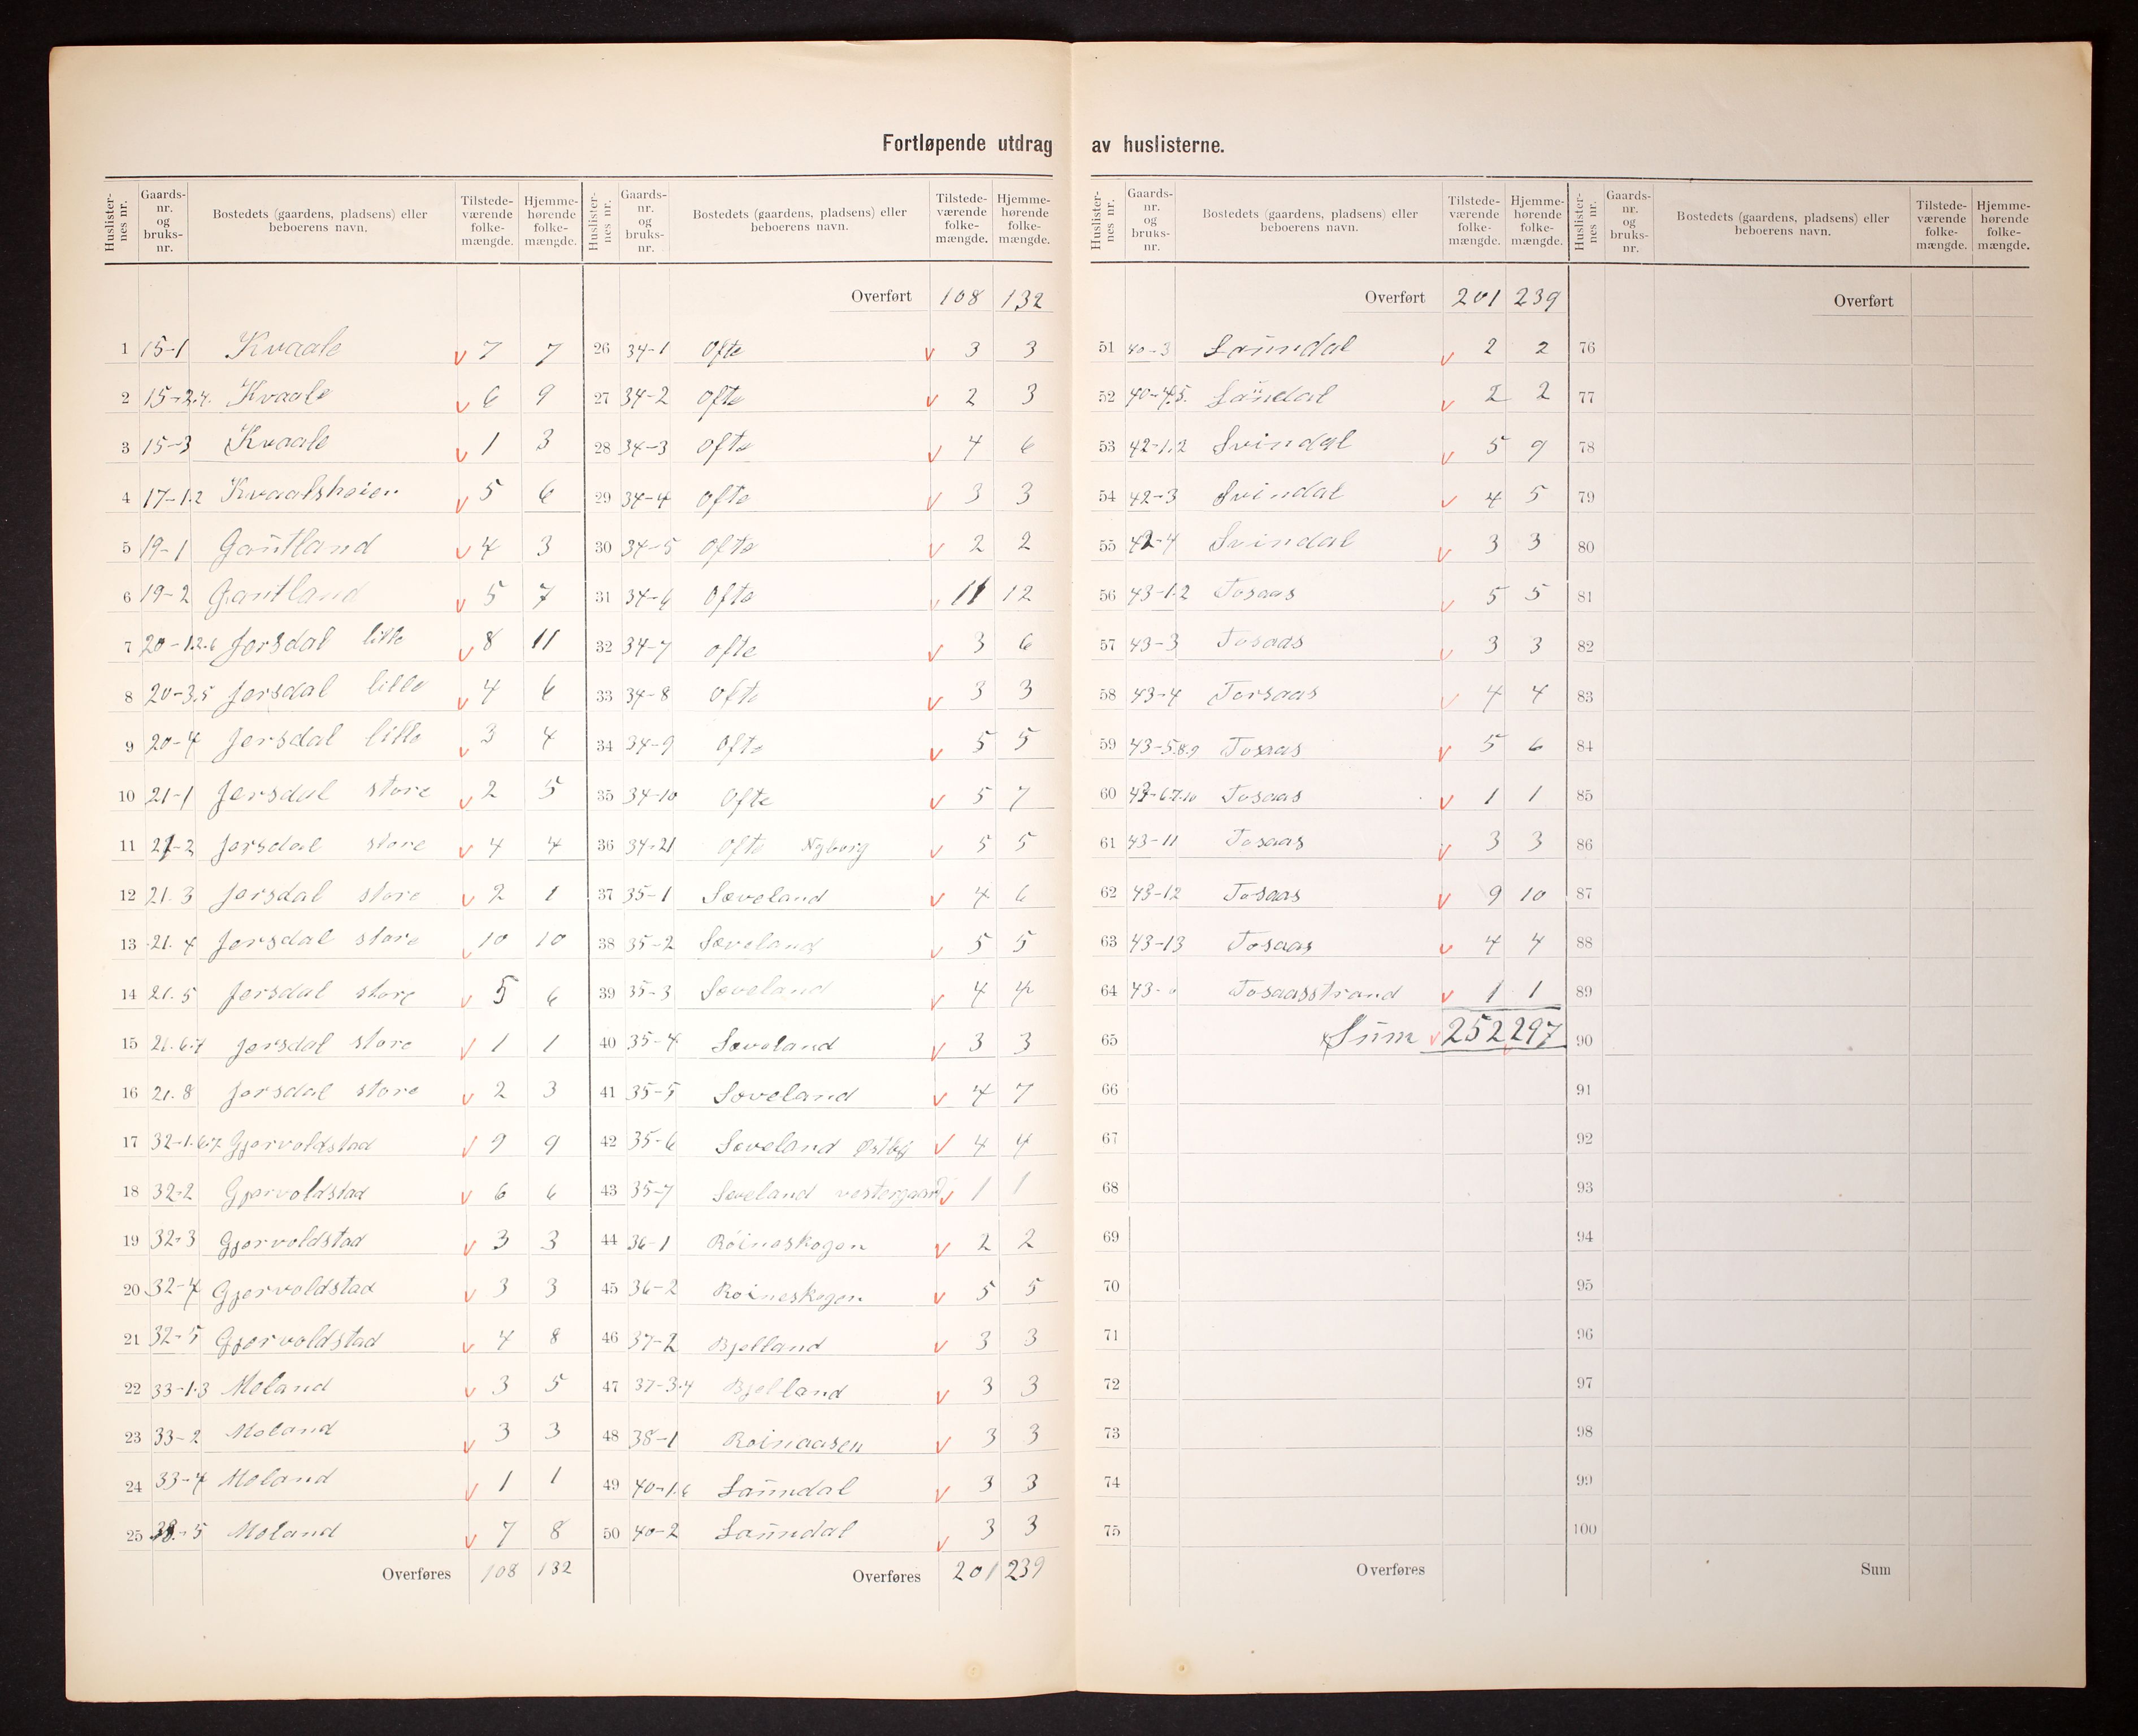 Fortløpende utdrag av huslisterne.
Huslister-nes nr. Gaards-nr. og bruks-nr. Bostedets (gaardens, pladsens) eller beboerens navn. Tilstede-værende folke-mængde. Hjemme-hørende folke-mængde.
1 15-1 Kvaale v 7 7
2 15-2.4. Kvaale v 6 9
3 15-3 Kvaale v 1 3
4 17-1.2 Kvaalsheien v 5 6
5 19-1 Gautland v 4 3
6 19-2 Gautland v 5 7
7 20-1.2.6 Jersdal lille v 8 11
8 20-3.5 Jersdal lille v 4 6
9 20-4 Jersdal lille v 3 4
10 21-1 Jersdal store v 2 5
11 21-2 Jersdal store v 4 4
12 21.3 Jersdal store v 2 1
13 21.4 Jersdal store v 10 10
14 21.5 Jersdal store v 5 6
15 21.6.7 Jersdal store v 1 1
16 21.8 Jersdal store v 2 3
17 32-1.6.7. Gjervoldstad v 9 9
18 32-2 Gjervoldstad v 6 6
19 32-3 Gjervoldstad v 3 3
20 32-4 Gjervoldstad v 3 3
21 32-5 Gjervoldstad v 4 8
22 33-1.3 Moland v 3 5
23 33-2 Moland v 3 3
24 33-4 Moland v 1 1
25 33-5 Moland v 7 8
Overføres 108 132
Huslister-nes nr. Gaards-nr. og bruks-nr. Bostedets (gaardens, pladsens) eller beboerens navn. Tilstede-værende folke-mængde. Hjemme-hørende folke-mængde.
Overført 108 132
26 34-1 Ofte v 3 3
27 34-2 Ofte v 2 3
28 34-3 Ofte v 4 6
29 34-4 Ofte v 3 3
30 34-5 Ofte v 2 2
31 34-6 Ofte v 11 12
32 34-7 Ofte v 3 6
33 34-8 Ofte v 3 3
34 34-9 Ofte v 5 5
35 34-10 Ofte v 5 7
36 34-21 Ofte Nyborg v 5 5
37 35-1 Søveland v 4 6
38 35-2 Søveland v 5 5
39 35-3 Søveland v 4 4
40 35-4 Søveland v 3 3
41 35-5 Søveland v 4 7
42 35-6 Søveland Østby v 4 4
43 35-7 Søveland vestergaard v 1 1
44 36-1 Røineskogen v 2 2
45 36-2 Røineskogen v 5 5
46 37-2 Bjelland v 3 3
47 37-3.4 Bjelland v 3 3
48 38-1 Røinaasen v 3 3
49 40-1.6 Laundal v 3 3
50 40-2 Laundal v 3 3
Overføres 201 239
Huslister-nes nr. Gaards-nr. og bruks-nr. Bostedets (gaardens, pladsens) eller beboerens navn. Tilstede-værende folke-mængde. Hjemme-hørende folke-mængde.
Overført 201 239
51 40-3 Laundal v 2 2
52 40-4.5. Laundal v 2 2
53 42-1.2 Svindal v 5 9
54 42-3 Svindal v 4 5
55 42-4 Svindal v 3 3
56 43-1.2 Tosaas v 5 5
57 43-3 Tosaas v 3 3
58 43-4 Torsaas v 4 4
59 43-5.8.9 Tosaas v 5 6
60 43-6.7.10 Tosaas v 1 1
61 43-11 Tosaas v 3 3
62 43-12 Tosaas v 9 10
63 43-13 Tosaas v 4 4
64 43- Tosaasstrand v 1 1
65 Sum v 252 297
66
67
68
69
70
71
72
73
74
75
Overføres
Huslister-nes nr. Gaards-nr. og bruks-nr. Bostedets (gaardens, pladsens) eller beboerens navn. Tilstede-værende folke-mængde. Hjemme-hørende folke-mængde.
Overført
76
77
78
79
80
81
82
83
84
85
86
87
88
89
90
91
92
93
94
95
96
97
98
99
100
Sum